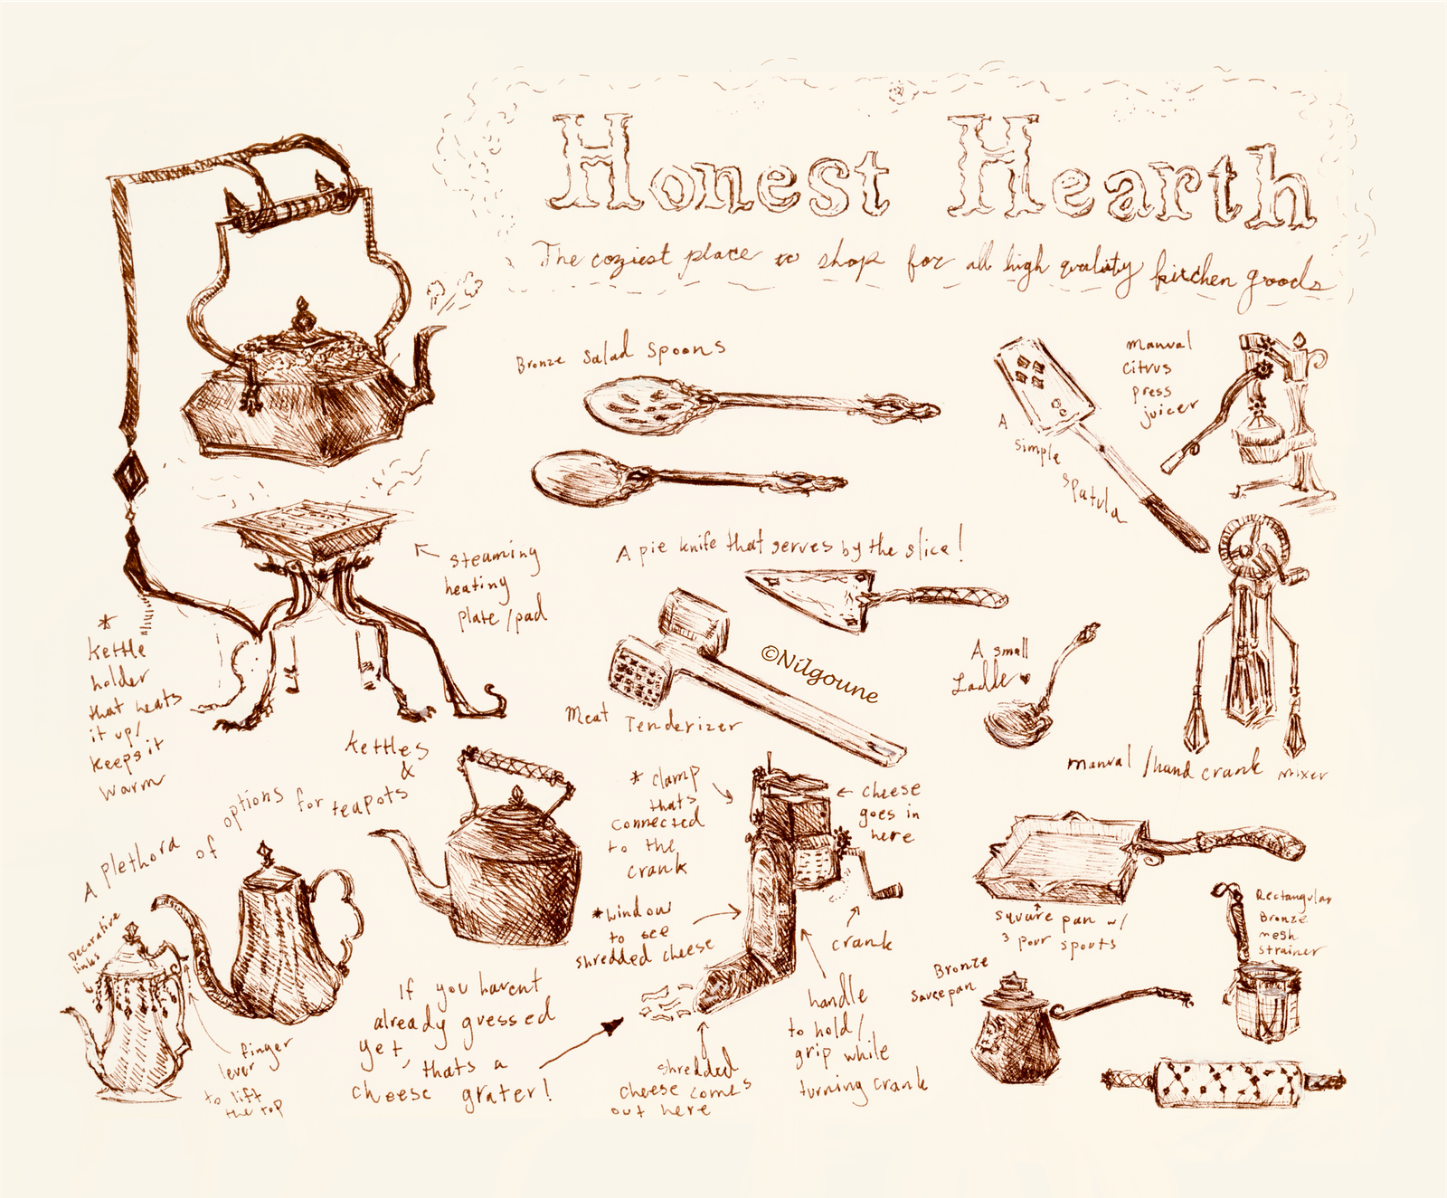 Honest Hearth
The coziest place to shop for all high quality kitchen goods
Bronze Salad Spoons
A
simple
spatula
manual
citrus
press
juicer
steaming
heating
plate/pad
A pie knife that serves by the slice!
*
kettle
holder
that heats
it up/
keeps it
warm
©Nilgoune
Meat Tenderizer
A small
Ladle ♥
manual/hand crank mixer
A plethora of options for teapots
&
kettles
* clamp
thats
connected
to the
crank
← cheese
goes in
here
*window
to see
shredded cheese
crank
handle
to hold/
grip while
turning crank
shredded
cheese comes
out here
If you havent
already guessed
yet, thats a
cheese grater!
Decorative
links
finger
lever
to lift
the top
square pan w/
3 pour spouts
Bronze
Saucepan
Rectangular
Bronze
mesh
strainer